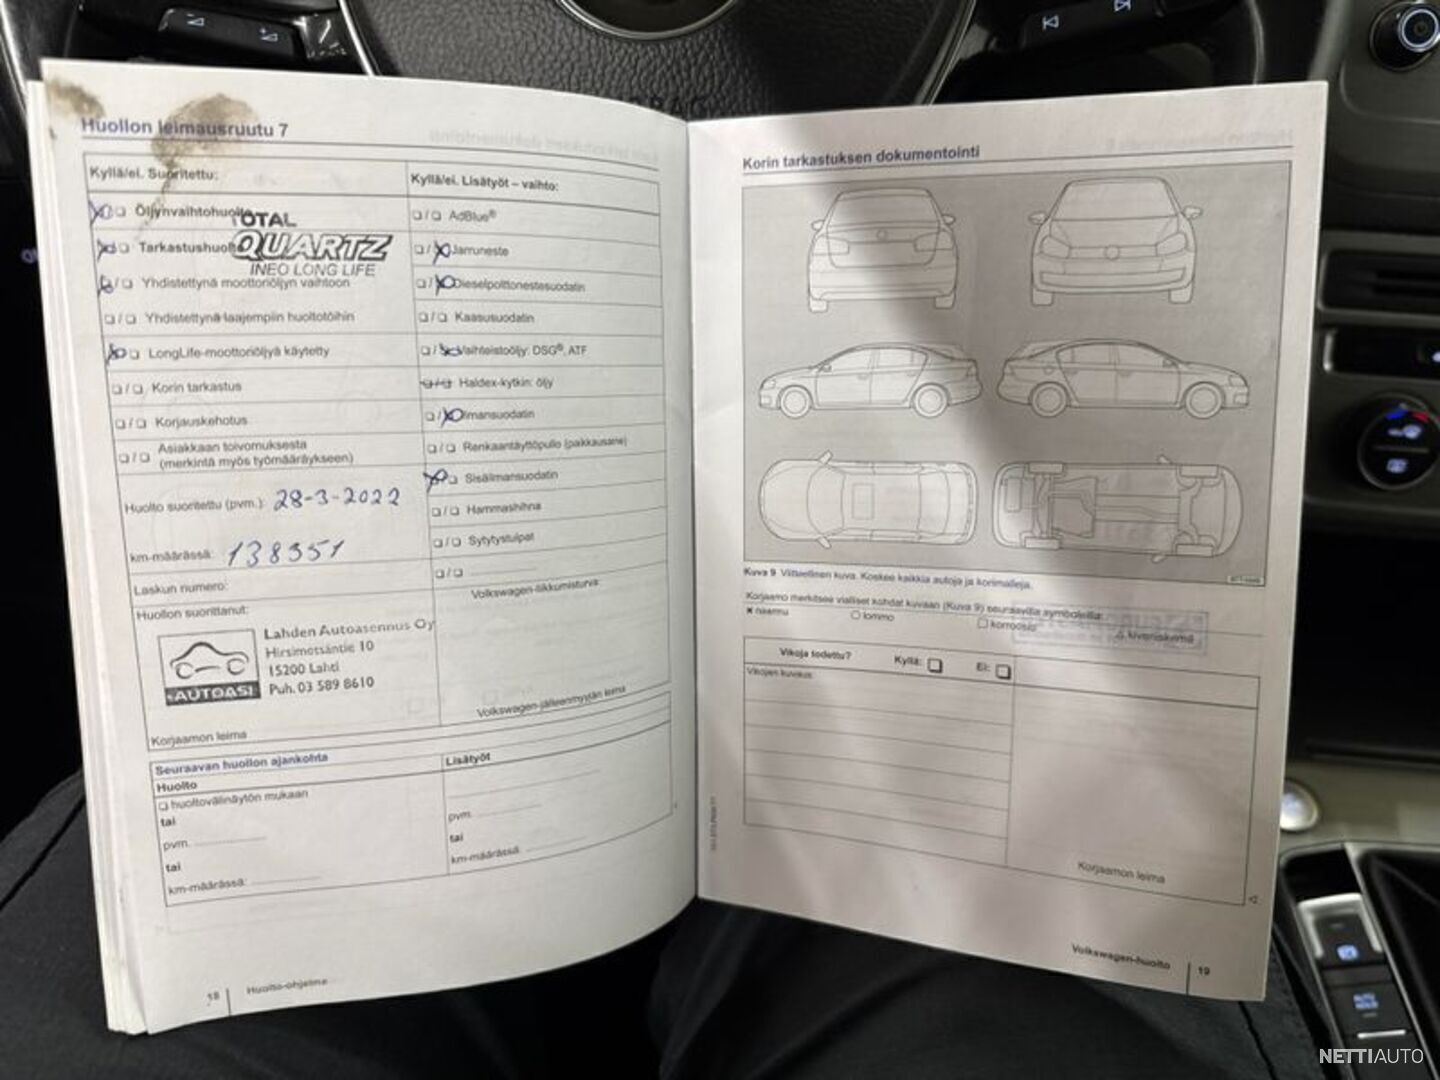 Huollon leimausruutu 7
Kyllä/ei. Suoritettu:
Öljynvaihtohuolto
TOTAL
QUARTZ
INEO LONG LIFE
Tarkastushuolto
Yhdistettynä moottoriöljyn vaihtoon
Yhdistettynä laajempiin huoltotöihin
LongLife-moottoriöljyä käytetty
Korin tarkastus
Korjauskehotus
Asiakkaan toivomuksesta
(merkintä myös työmääräykseen)
Huolto suoritettu (pvm.): 28-3-2022
km-määrässä: 138351
Laskun numero:
Huollon suorittanut:
Lahden Autoasennus Oy
Hirsimetsäntie 10
15200 Lahti
Puh. 03 589 8610
AUTOASI
Korjaamon leima
Kyllä/ei. Lisätyöt – vaihto:
AdBlue®
Jarruneste
Dieselpolttonestesuodatin
Kaasusuodatin
Vaihteistoöljy: DSG®, ATF
Haldex-kytkin: öljy
Ilmansuodatin
Renkaantäyttöpullo (paikkausaine)
Sisäilmansuodatin
Hammashihna
Sytytystulpat
Volkswagen-liikkumisturva:
Volkswagen-jälleenmyyjän leima
Seuraavan huollon ajankohta
Huolto
huoltovälinäytön mukaan
tai
pvm.
tai
km-määrässä:
Lisätyöt
pvm.
tai
km-määrässä:
18 Huolto-ohjelma
Korin tarkastuksen dokumentointi
Kuva 9 Viitteellinen kuva. Koskee kaikkia autoja ja korimalleja.
Korjaamo merkitsee vialliset kohdat kuvaan (Kuva 9) seuraavilla symboleilla:
naarmu lommo korroosio kiveniskemä
Vikoja todettu? Kyllä: Ei:
Vikojen kuvaus:
Korjaamon leima
Volkswagen-huolto 19
AUTO HOLD
NETTIAUTO